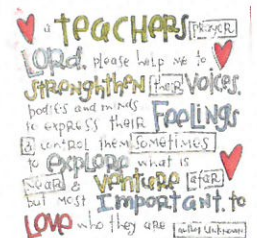 a teachers Prayer
Lord, please help me to
strenghthen their Voices,
bodies and minds
to express their Feelings
& control them sometimes
to explore what is
near & venture afar
but most Important to
Love who they are author unknown